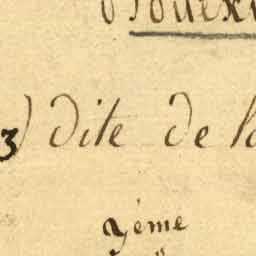 3) dite de la
2ème